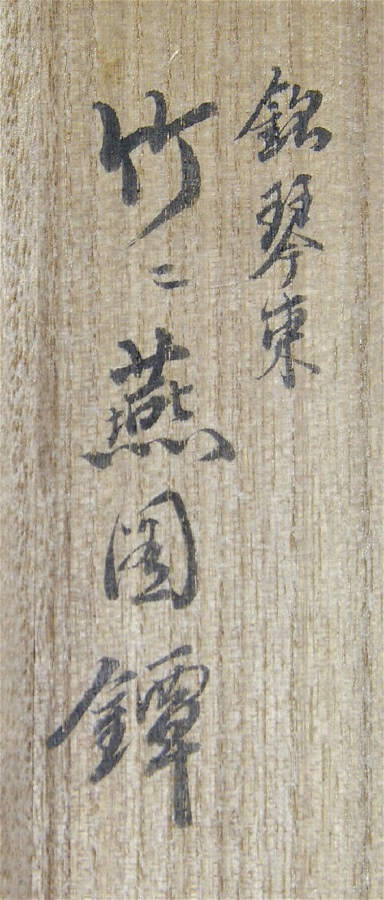 銘琴東
竹ニ燕図鐔